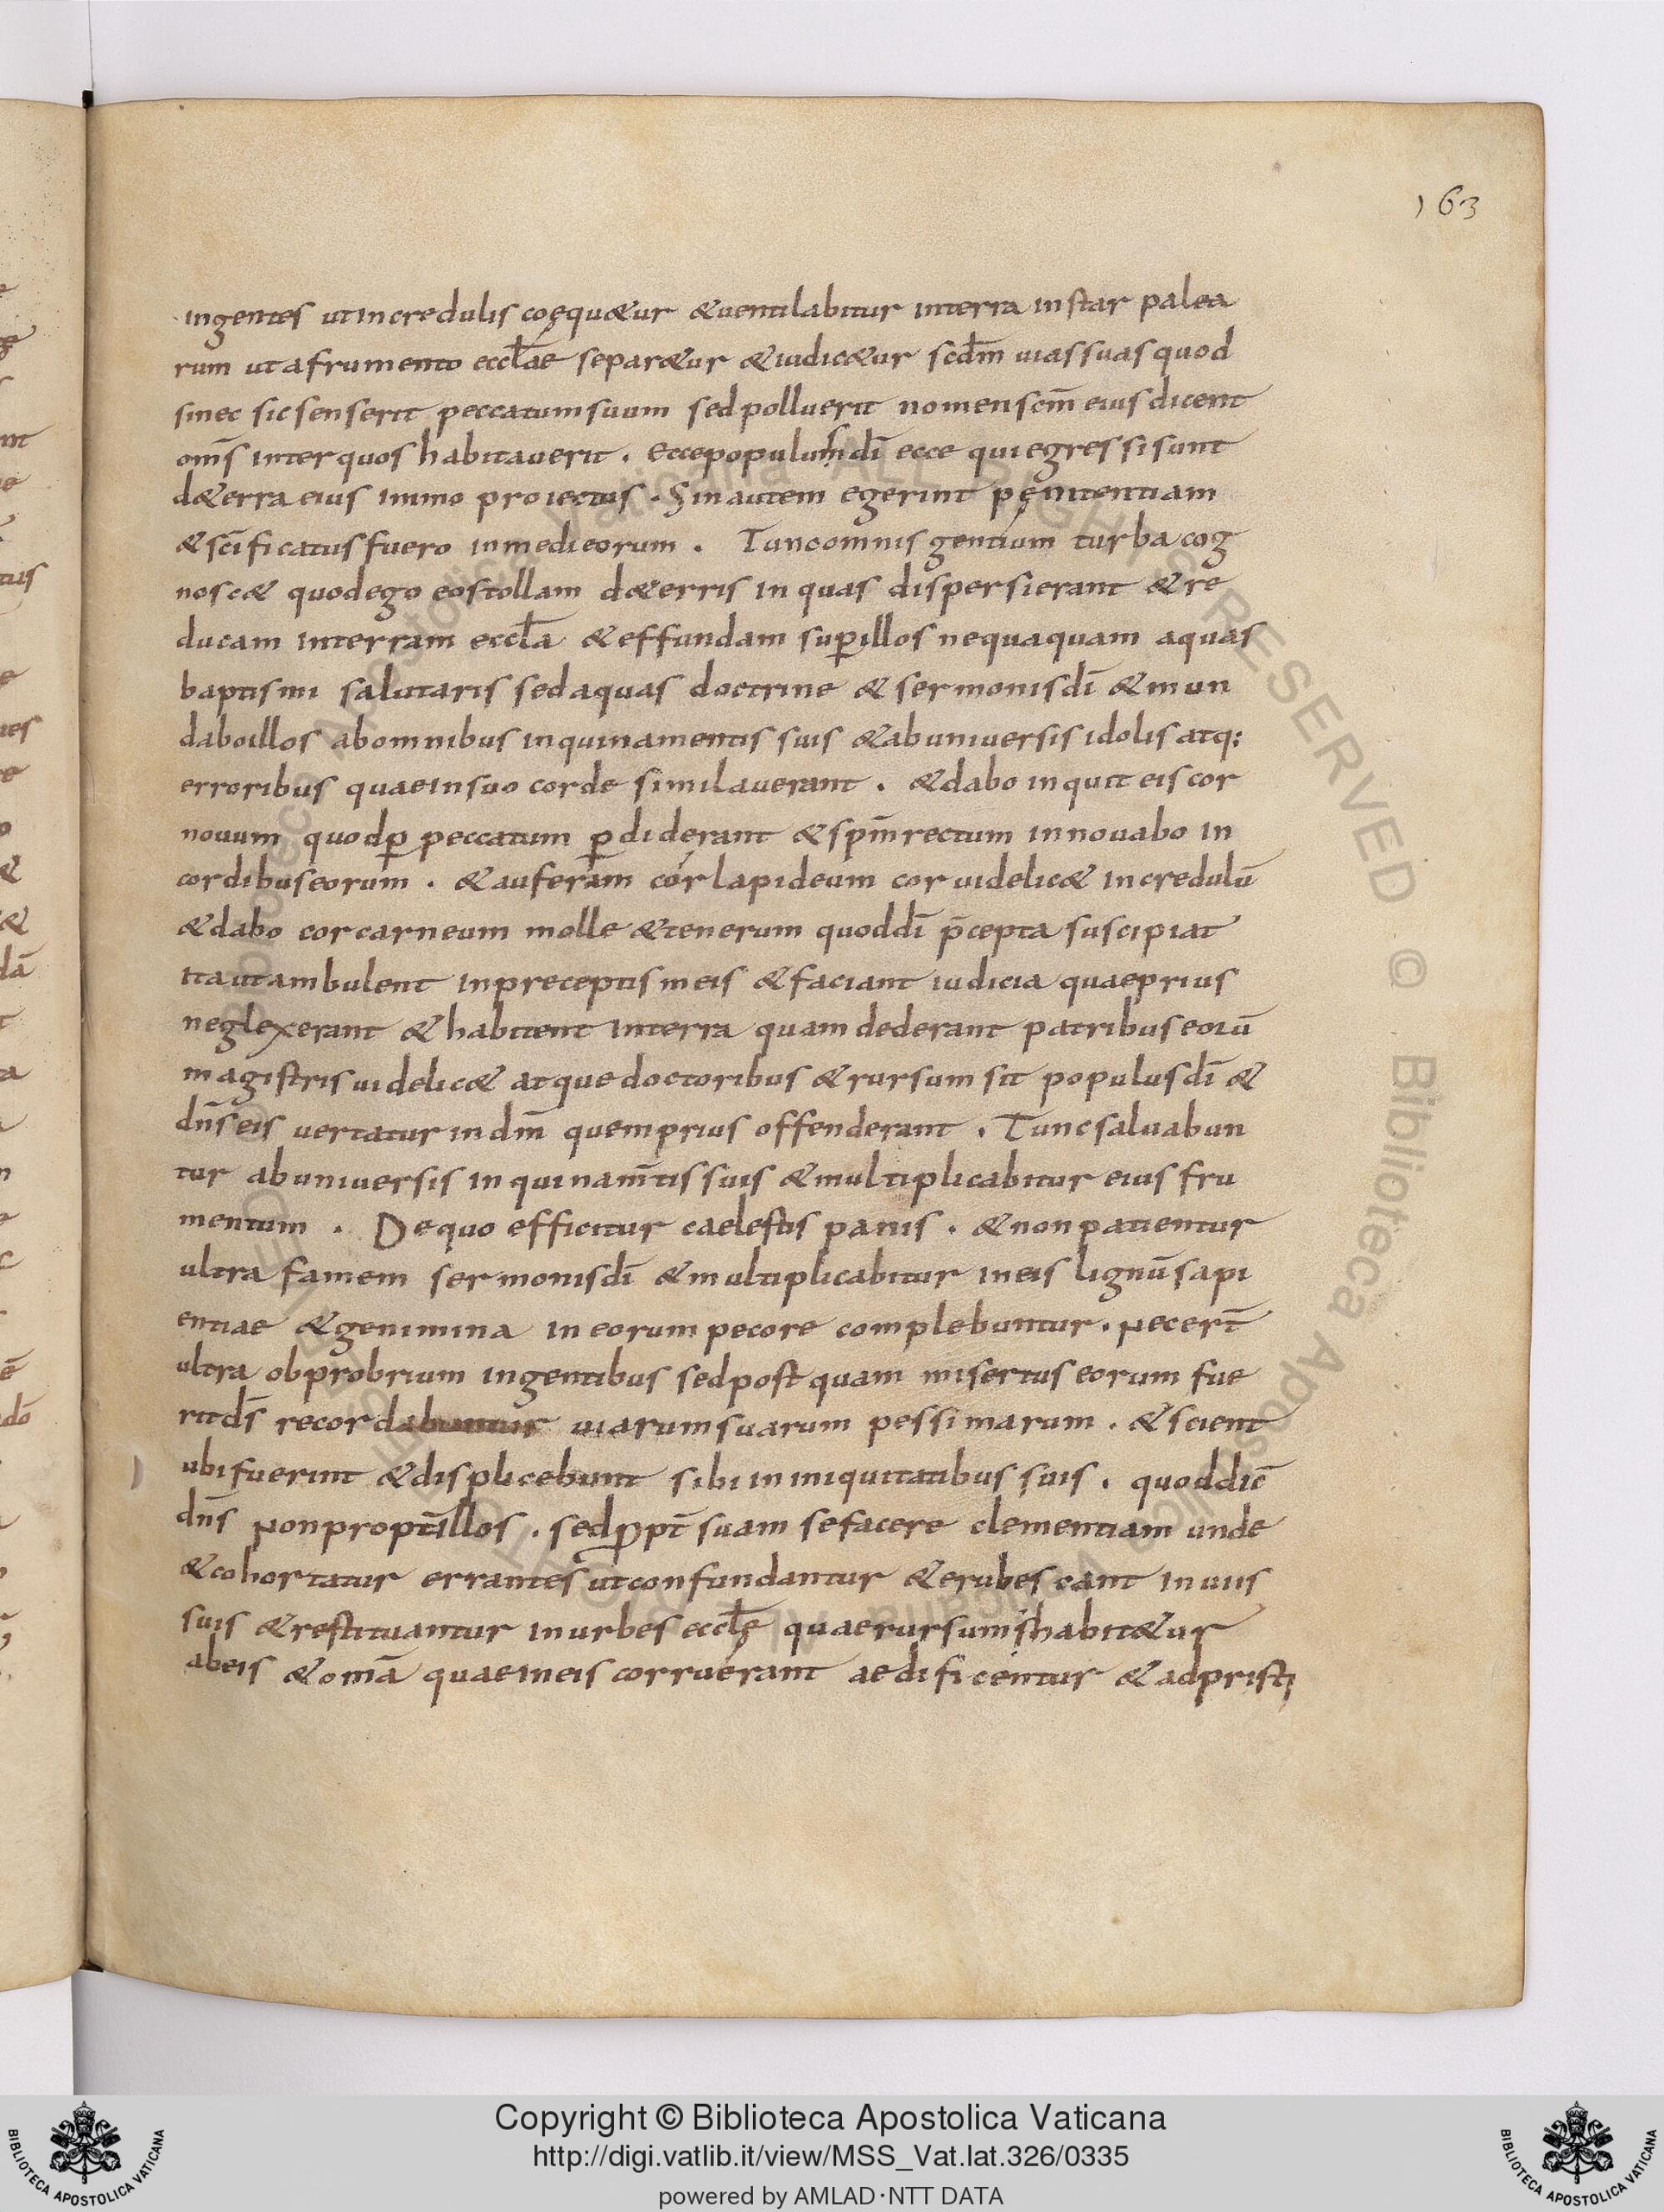 163
ingentes utincredulis coęquetur &uentilabitur interra instar palea
rum utafrumento eccl̄ae separ&ur &iudic&ur scdm̄ uiassuasquod
sinec sicsenserit peccatumsuum sedpolluerit nomenscm̄ eiusdicent
om̄s interquoshabitauerit . eccepopulusdī ecce quiegressisunt
d&erraeius immo proiectus . Sinautem egerint pęnitentiam
&scīficatusfuero inmedieorum . Tuncomnis gentium turbacog
nosc& quodego eostollam d&erris inquas dispersierant &re
ducam interram eccl̄a &effundam sup̱illos nequaquam aquas
baptismi salutaris sedaquas doctrine & sermonisdī &mun
daboillos abomnibus inquinamentis suis &abuniuersisidolisatq:
erroribus quaeinsuo corde similauerant . &dabo inquit eiscor
nouum quodp̱ peccatum p̱diderant &spm̄rectum innouabo in
cordibuseorum . &auferam corlapideum coruidelic& incredulū
&dabo corcarneum molle &tenerum quoddī p̄cepta suscipiat
itautambulent inpreceptismeis &faciant iudicia quaeprius
neglexerant &habitent interra quamdederant patribuseorū
magistrisuidelic& atquedoctoribus &rursumsit populusdī &
dn̄seis uertaturindm̄ quemprius offenderant . Tuncsaluabun
tur abuniuersis inquinam̄tissuis &multiplicabitur eiusfru
mentum . Dequo efficitur caelestis panis . &nonpatientur
ultra famem sermonisdī &multiplicabitur ineis lignūsapi
entiae &genimina ineorumpecore complebuntur. Necert̄
ultra obprobrium ingentibus sedpostquam misertuseorum fue
ritds̄ recordabuntur uiarumsuarum pessimarum . &scient
ubifuerint &displicebunt sibiiniquitatibussuis . quoddic̄
dn̄s Nonpropt̄illos . sedꝓpt̄ suam sefacere clementiam unde
&cohortatur errantes utconfundantur &erubescant inuiis
suis &restituantur inurbes eccl̄ę quaerursum inhabit&ur
abeis &omā quaeineis corruerant aedificentur &adpristi
Copyright © Biblioteca Apostolica Vaticana
http://digi.vatlib.it/view/MSS_Vat.lat.326/0335
powered by AMLAD·NTT DATA
BIBLIOTECA APOSTOLICA VATICANA
BIBLIOTECA APOSTOLICA VATICANA